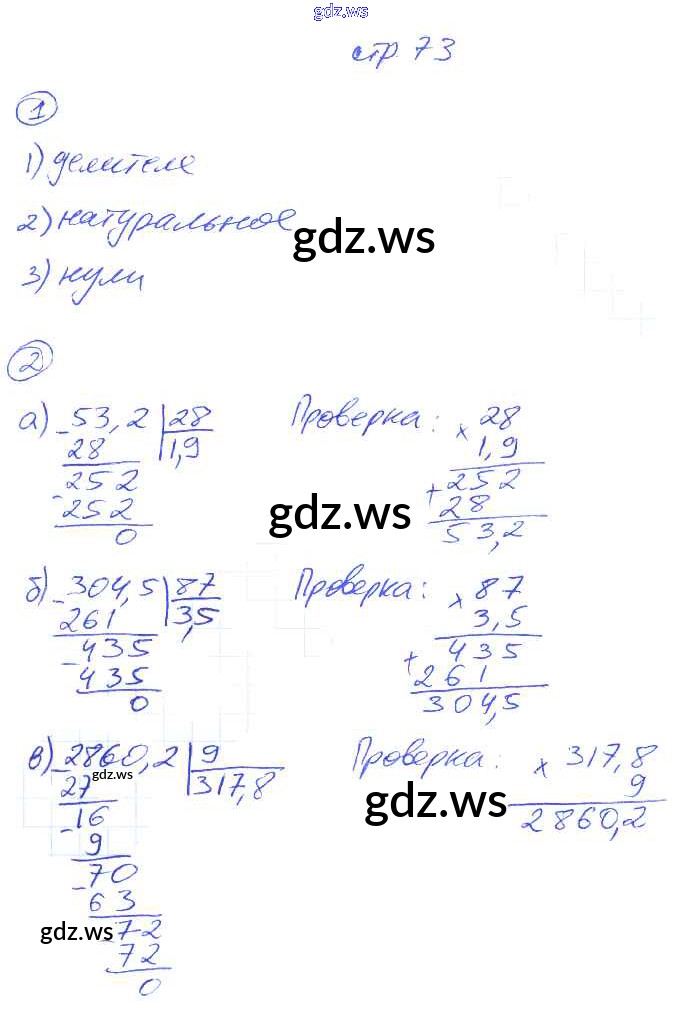 gdz.ws
стр 73
1
1) делителе
2) натуральное
gdz.ws
3) нули
2
а) - 53,2 | 28 Проверка: × 28
28 1,9 1,9
252 252
- 252 gdz.ws + 28
0 53,2
б) - 304,5 | 87 Проверка: × 87
261 3,5 3,5
- 435 435
435 + 261
0 304,5
в) - 2860,2 | 9 Проверка: × 317,8
27 gdz.ws 317,8 9
- 16 gdz.ws 2860,2
9
- 70
63
gdz.ws - 72
72
0